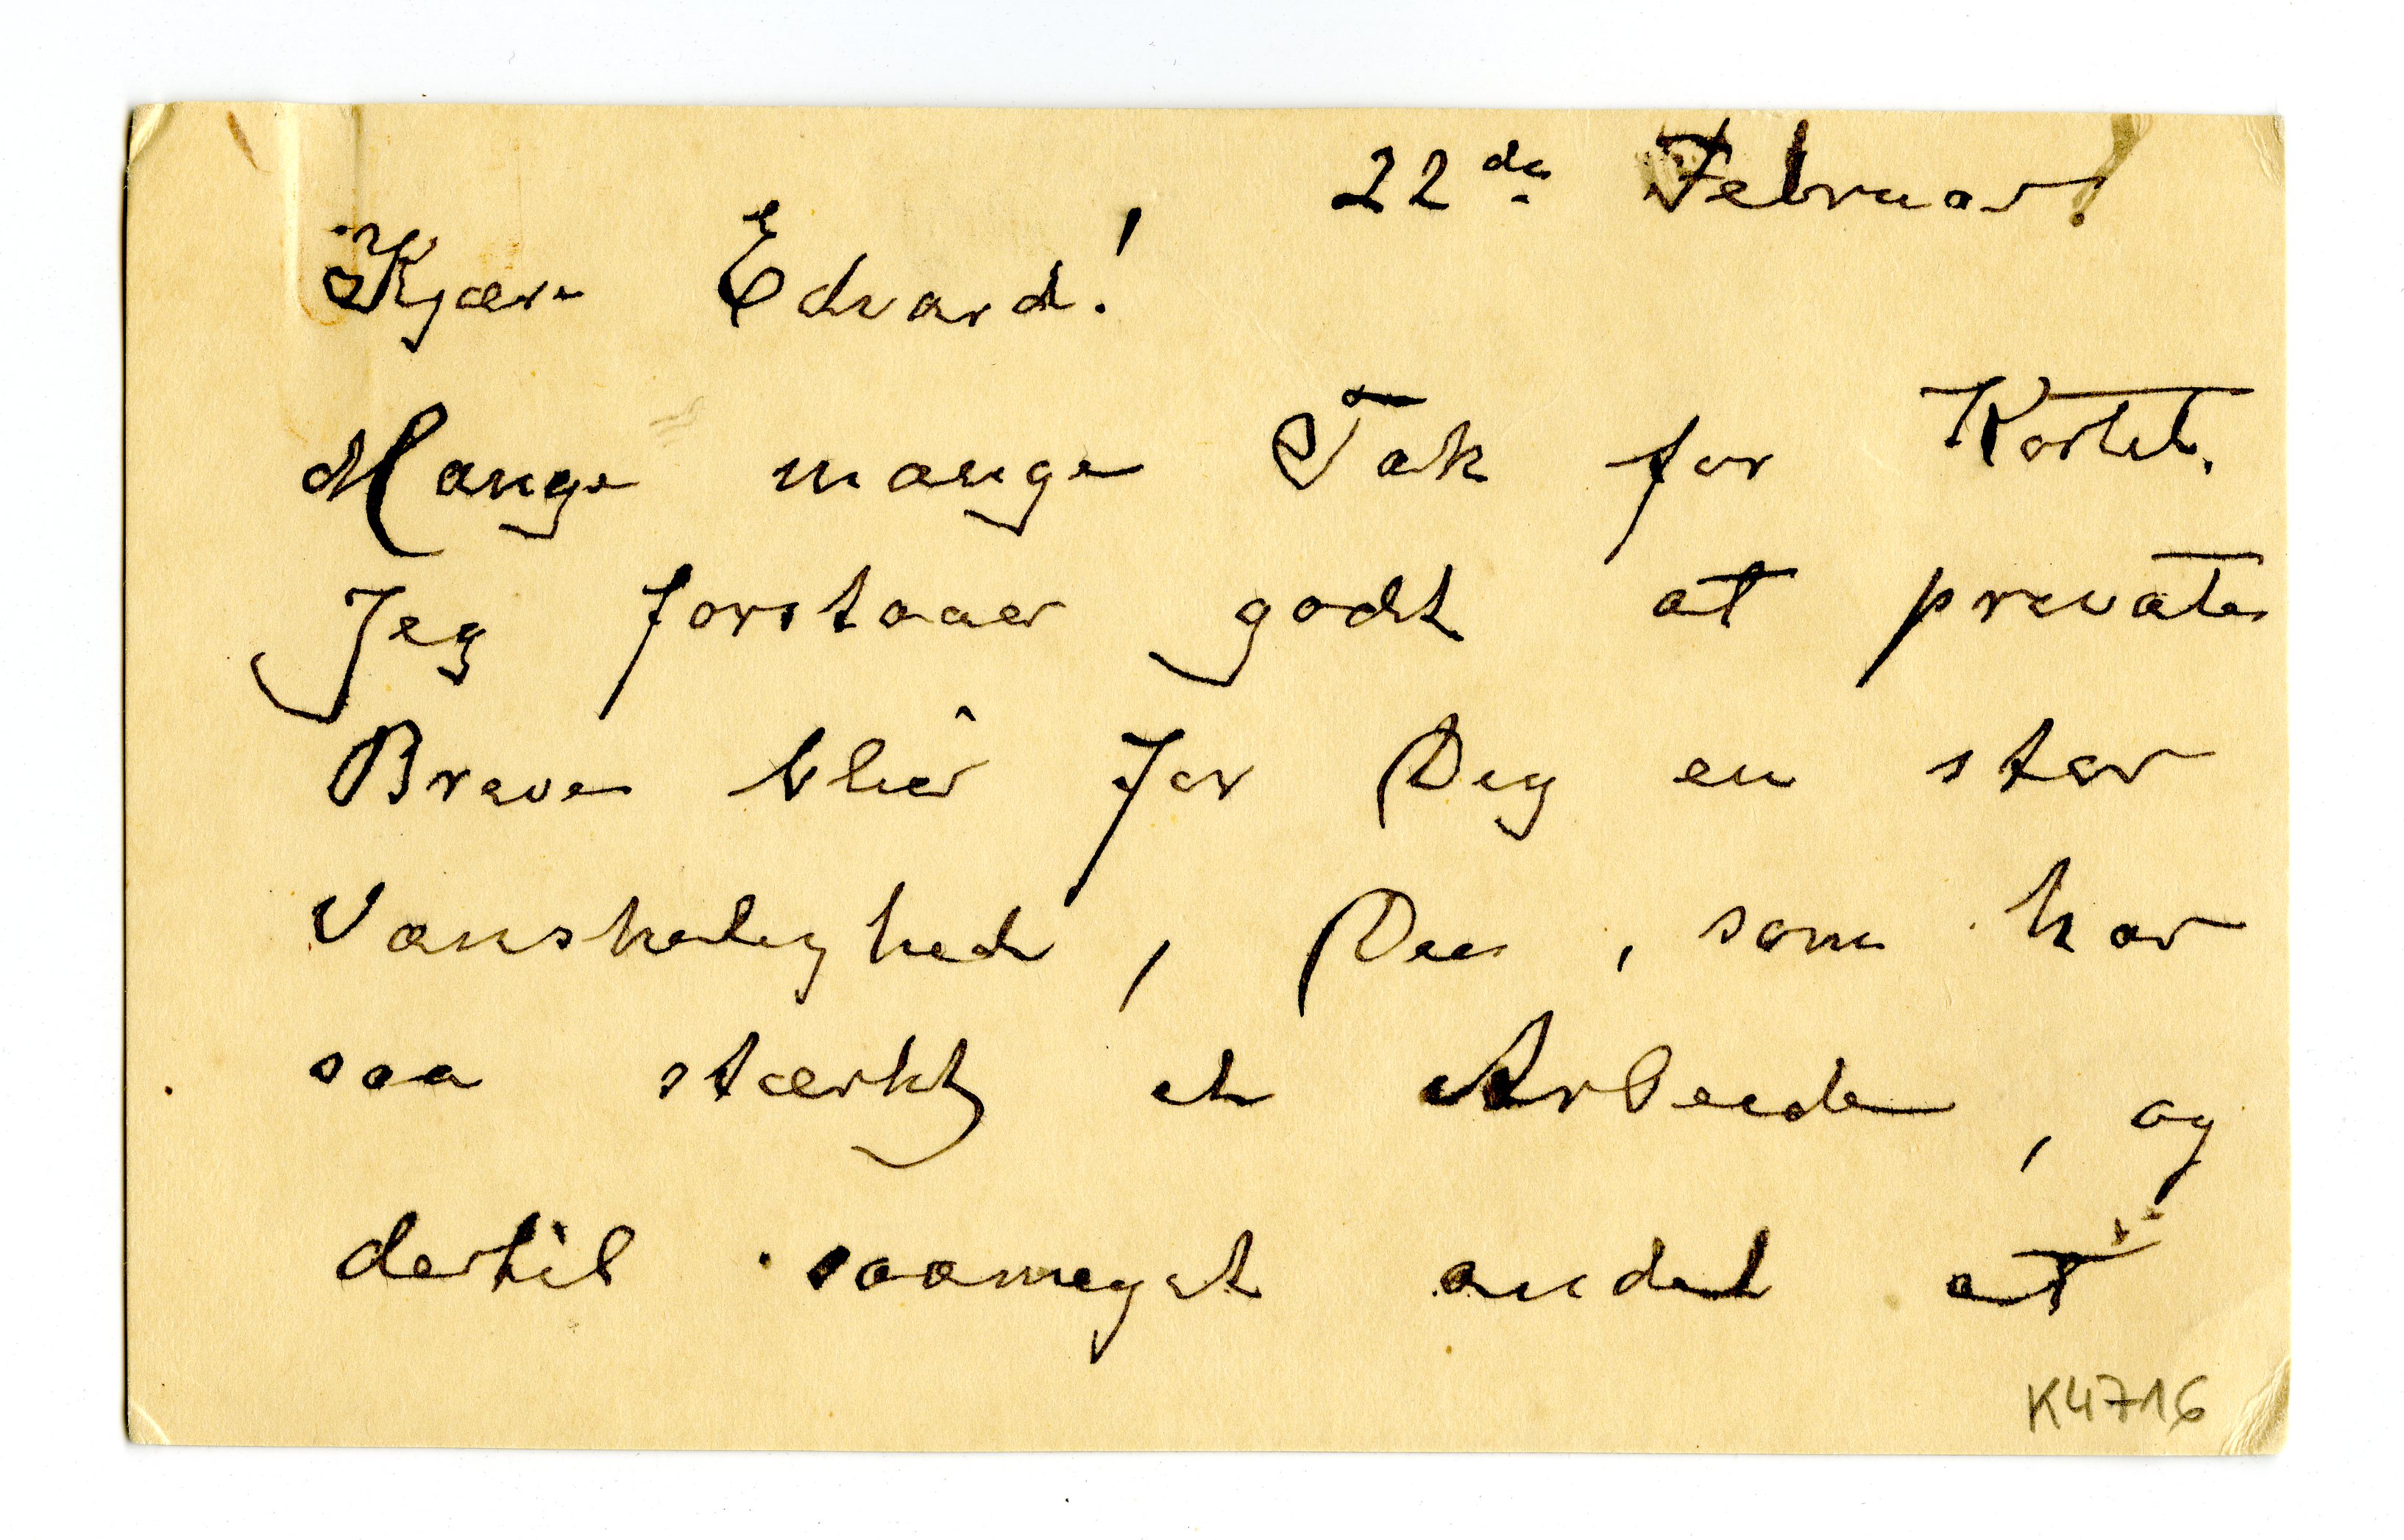 22de Februar!
Kjære Edvard!
Mange mange Tak for Kortet.
Jeg forstaaer godt at private
Breve blier for Dig en stor
Vanskelighed, Du, som har
saa stærkt et Arbeide, og
dertil saameget andet at
K4716